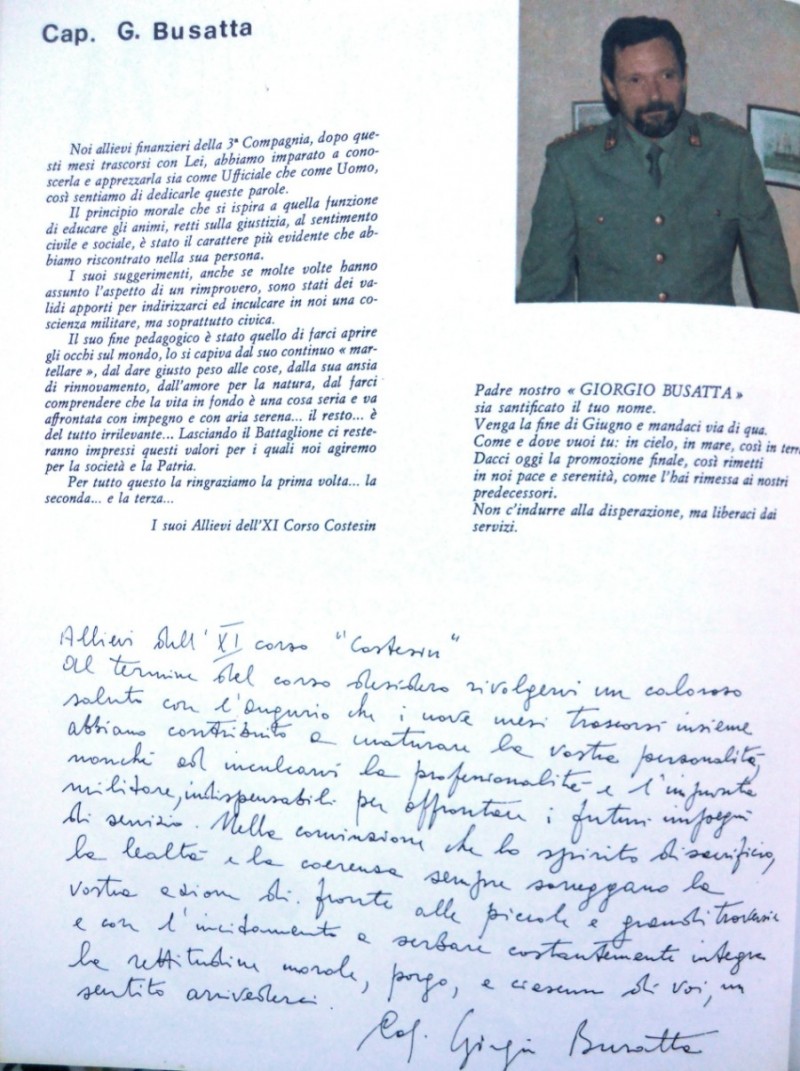 Cap. G. Busatta
Noi allievi finanzieri della 3ª Compagnia, dopo que-
sti mesi trascorsi con Lei, abbiamo imparato a cono-
scerla e apprezzarla sia come Ufficiale che come Uomo,
così sentiamo di dedicarle queste parole.
Il principio morale che si ispira a quella funzione
di educare gli animi, retti sulla giustizia, al sentimento
civile e sociale, è stato il carattere più evidente che ab-
biamo riscontrato nella sua persona.
I suoi suggerimenti, anche se molte volte hanno
assunto l'aspetto di un rimprovero, sono stati dei va-
lidi apporti per indirizzarci ed inculcare in noi una co-
scienza militare, ma soprattutto civica.
Il suo fine pedagogico è stato quello di farci aprire
gli occhi sul mondo, lo si capiva dal suo continuo « mar-
tellare », dal dare giusto peso alle cose, dalla sua ansia
di rinnovamento, dall'amore per la natura, dal farci
comprendere che la vita in fondo è una cosa seria e va
affrontata con impegno e con aria serena... il resto... è
del tutto irrilevante... Lasciando il Battaglione ci reste-
ranno impressi questi valori per i quali noi agiremo
per la società e la Patria.
Per tutto questo la ringraziamo la prima volta... la
seconda... e la terza...
I suoi Allievi dell'XI Corso Costesin
Padre nostro « GIORGIO BUSATTA »
sia santificato il tuo nome.
Venga la fine di Giugno e mandaci via di qua.
Come e dove vuoi tu: in cielo, in mare, così in terr
Dacci oggi la promozione finale, così rimetti
in noi pace e serenità, come l'hai rimessa ai nostri
predecessori.
Non c'indurre alla disperazione, ma liberaci dai
servizi.
Allievi dell'XI corso "Costesin"
Al termine del corso desidero rivolgervi un caloroso
saluto con l'augurio che i nove mesi trascorsi insieme
abbiano contribuito a maturare la vostra personalità,
nonché ad inculcarvi la professionalità e l'impronta
militare, indispensabili per affrontare i futuri impegni
di servizio. Nella convinzione che lo spirito di sacrificio,
la lealtà e la coerenza sempre sorreggano la
vostra azione di fronte alle piccole e grandi traversie
e con l'incitamento a serbare costantemente integra
la rettitudine morale, porgo, a ciascuno di voi, un
sentito arrivederci.
Cap. Giorgio Busatta